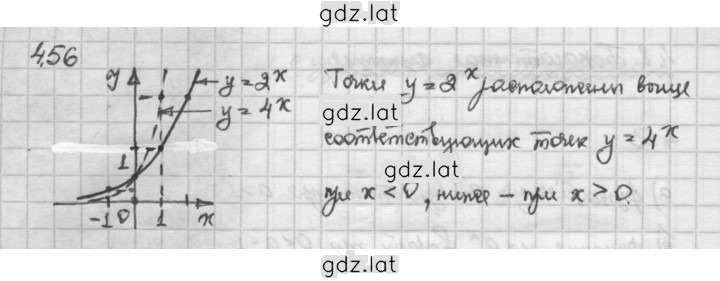 gdz.lat
4.56
y
y = 2^x
y = 4^x
1
-1 0 1 x
Точки y = 2^x расположены выше
gdz.lat
соответствующих точек y = 4^x
gdz.lat
при x < 0, ниже – при x > 0.
gdz.lat
gdz.lat